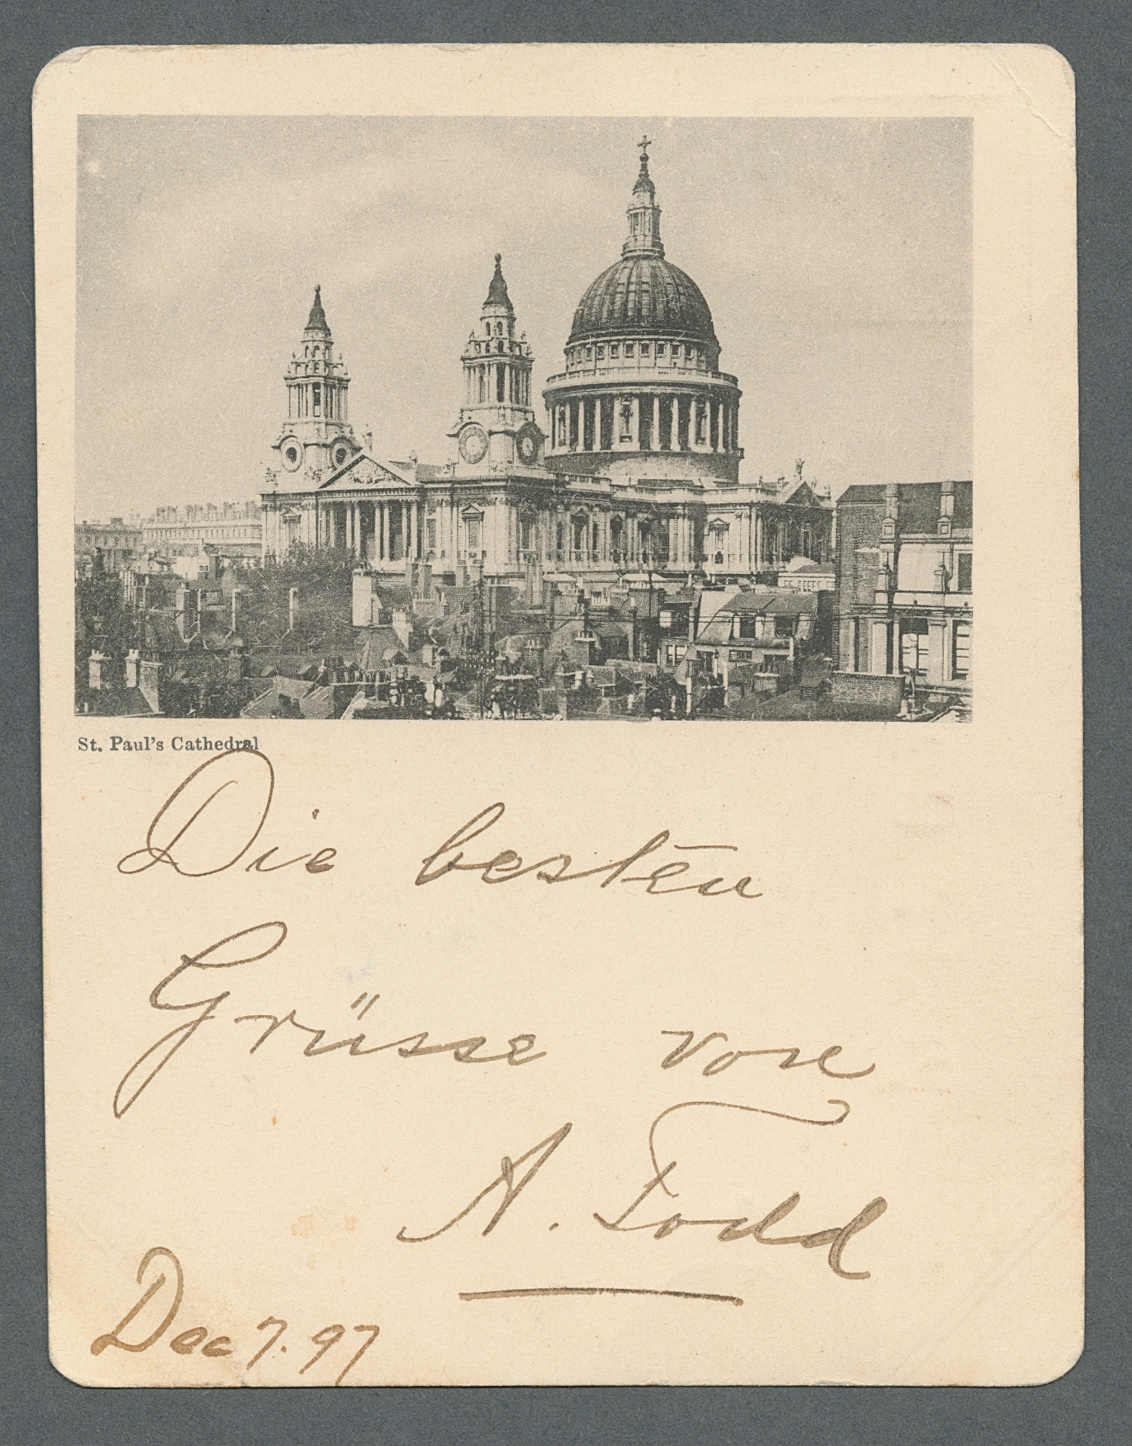 St. Paul's Cathedral
Die besten
Grüsse von
A. Todd
Dec 7. 97